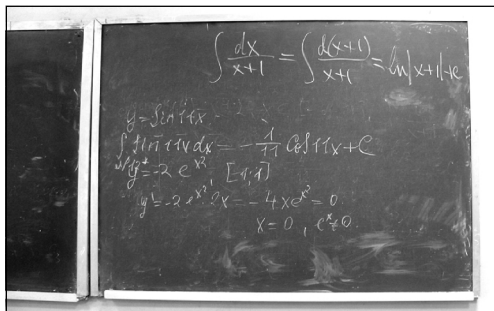 ∫ dx/(x+1) = ∫ d(x+1)/(x+1) = ln|x+1|+c
y = sin 11x
∫ sin 11x dx = -1/11 cos 11x + C
y = -2 e^x²,
y' = -2 e^x² · 2x = -4xe^x² = 0
x = 0, e^x² ≠ 0